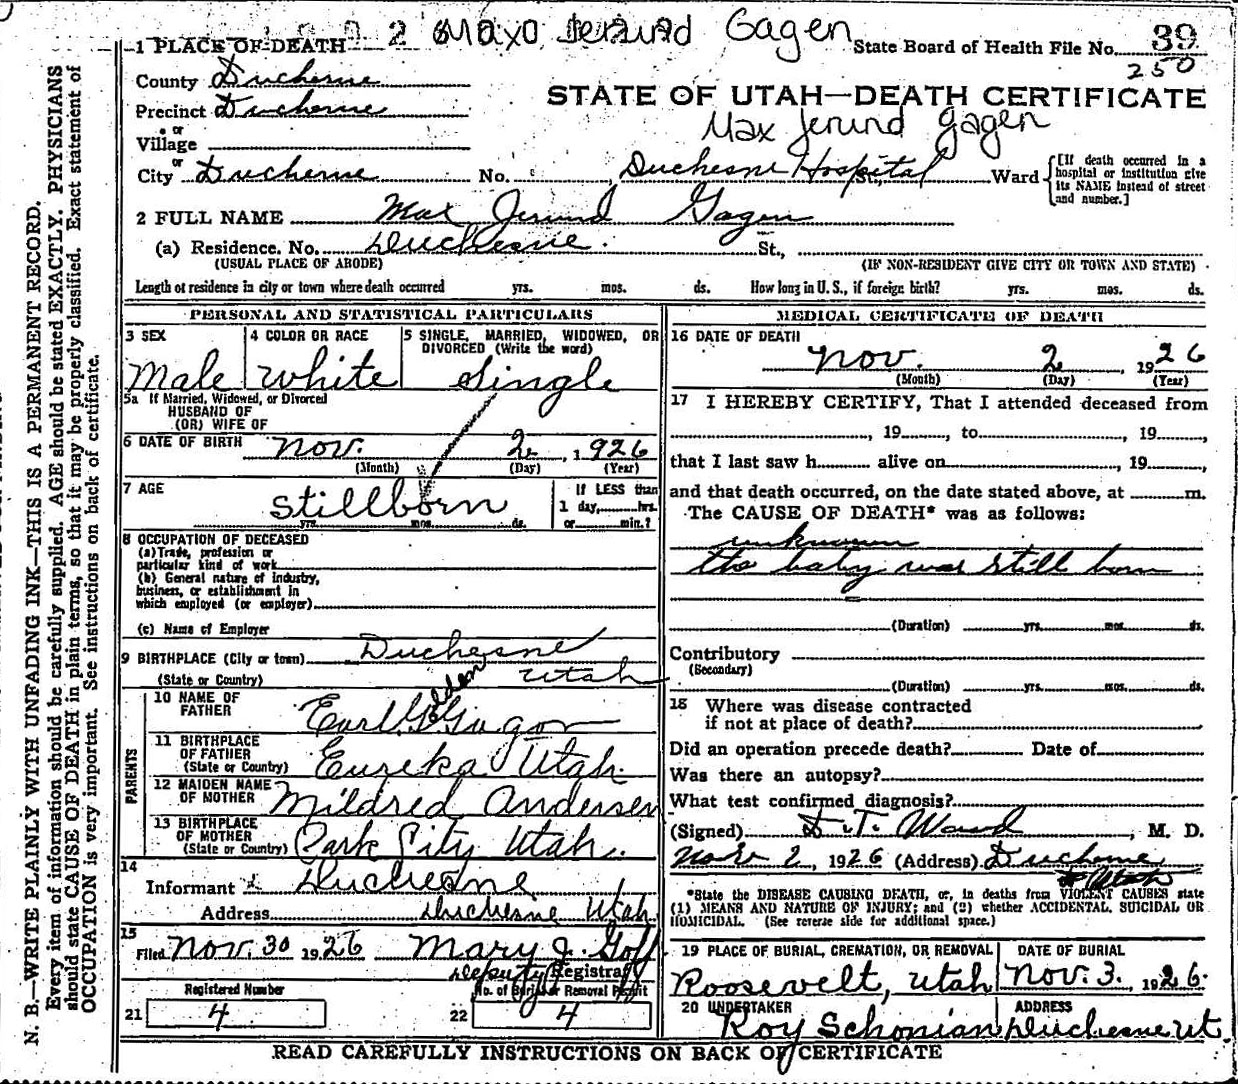 2 Maxo Jerund Gagen
State Board of Health File No. 39
250
1 PLACE OF DEATH
County Duchesne
STATE OF UTAH—DEATH CERTIFICATE
Precinct Duchesne
Max Jerund Gagen
or
Village
or
City Duchesne No. , Duchesne Hospital St., Ward
[If death occurred in a hospital or institution give its NAME instead of street and number.]
2 FULL NAME Max Jerund Gagen
(a) Residence. No. Duchesne. St.,
(USUAL PLACE OF ABODE) (IF NON-RESIDENT GIVE CITY OR TOWN AND STATE)
Length of residence in city or town where death occurred yrs. mos. ds. How long in U. S., if foreign birth? yrs. mos. ds.
PERSONAL AND STATISTICAL PARTICULARS
3 SEX
Male
4 COLOR OR RACE
White
5 SINGLE, MARRIED, WIDOWED, OR DIVORCED (Write the word)
Single
5a If Married, Widowed, or Divorced
HUSBAND OF
(OR) WIFE OF
6 DATE OF BIRTH Nov. 2, 1926
(Month) (Day) (Year)
7 AGE
Stillborn
yrs. mos. ds.
If LESS than
1 day, hrs.
or min.?
8 OCCUPATION OF DECEASED
(a) Trade, profession or
particular kind of work
(b) General nature of industry,
business, or establishment in
which employed (or employer)
(c) Name of Employer
9 BIRTHPLACE (City or town) Duchesne
(State or Country) Utah
PARENTS
10 NAME OF FATHER Earl G Gagon
11 BIRTHPLACE OF FATHER (State or Country) Eureka Utah.
12 MAIDEN NAME OF MOTHER Mildred Andersen
13 BIRTHPLACE OF MOTHER (State or Country) Park City Utah.
14
Informant Duchesne
Address Duchesne Utah
15
Filed Nov. 30 1926 Mary J. Goff
Deputy Registrar
Registered Number No. of Burial or Removal Permit
21 4 22 4
MEDICAL CERTIFICATE OF DEATH
16 DATE OF DEATH
Nov. 2, 1926
(Month) (Day) (Year)
17 I HEREBY CERTIFY, That I attended deceased from
, 19 , to , 19 ,
that I last saw h alive on , 19 ,
and that death occurred, on the date stated above, at m.
The CAUSE OF DEATH* was as follows:
unknown
the baby was still born
(Duration) yrs. mos. ds.
Contributory
(Secondary)
(Duration) yrs. mos. ds.
18 Where was disease contracted
if not at place of death?
Did an operation precede death? Date of
Was there an autopsy?
What test confirmed diagnosis?
(Signed) D. T. Ward, M. D.
Nov 2, 1926 (Address) Duchesne
Utah
*State the DISEASE CAUSING DEATH, or, in deaths from VIOLENT CAUSES state
(1) MEANS AND NATURE OF INJURY; and (2) whether ACCIDENTAL, SUICIDAL OR
HOMICIDAL. (See reverse side for additional space.)
19 PLACE OF BURIAL, CREMATION, OR REMOVAL
Roosevelt, Utah
DATE OF BURIAL
Nov. 3. 1926.
20 UNDERTAKER
Roy Schonian
ADDRESS
Duchesne Ut.
READ CAREFULLY INSTRUCTIONS ON BACK OF CERTIFICATE
N. B.—WRITE PLAINLY WITH UNFADING INK—THIS IS A PERMANENT RECORD.
Every item of information should be carefully supplied. AGE should be stated EXACTLY. PHYSICIANS
should state CAUSE OF DEATH in plain terms, so that it may be properly classified. Exact statement of
OCCUPATION is very important. See instructions on back of certificate.